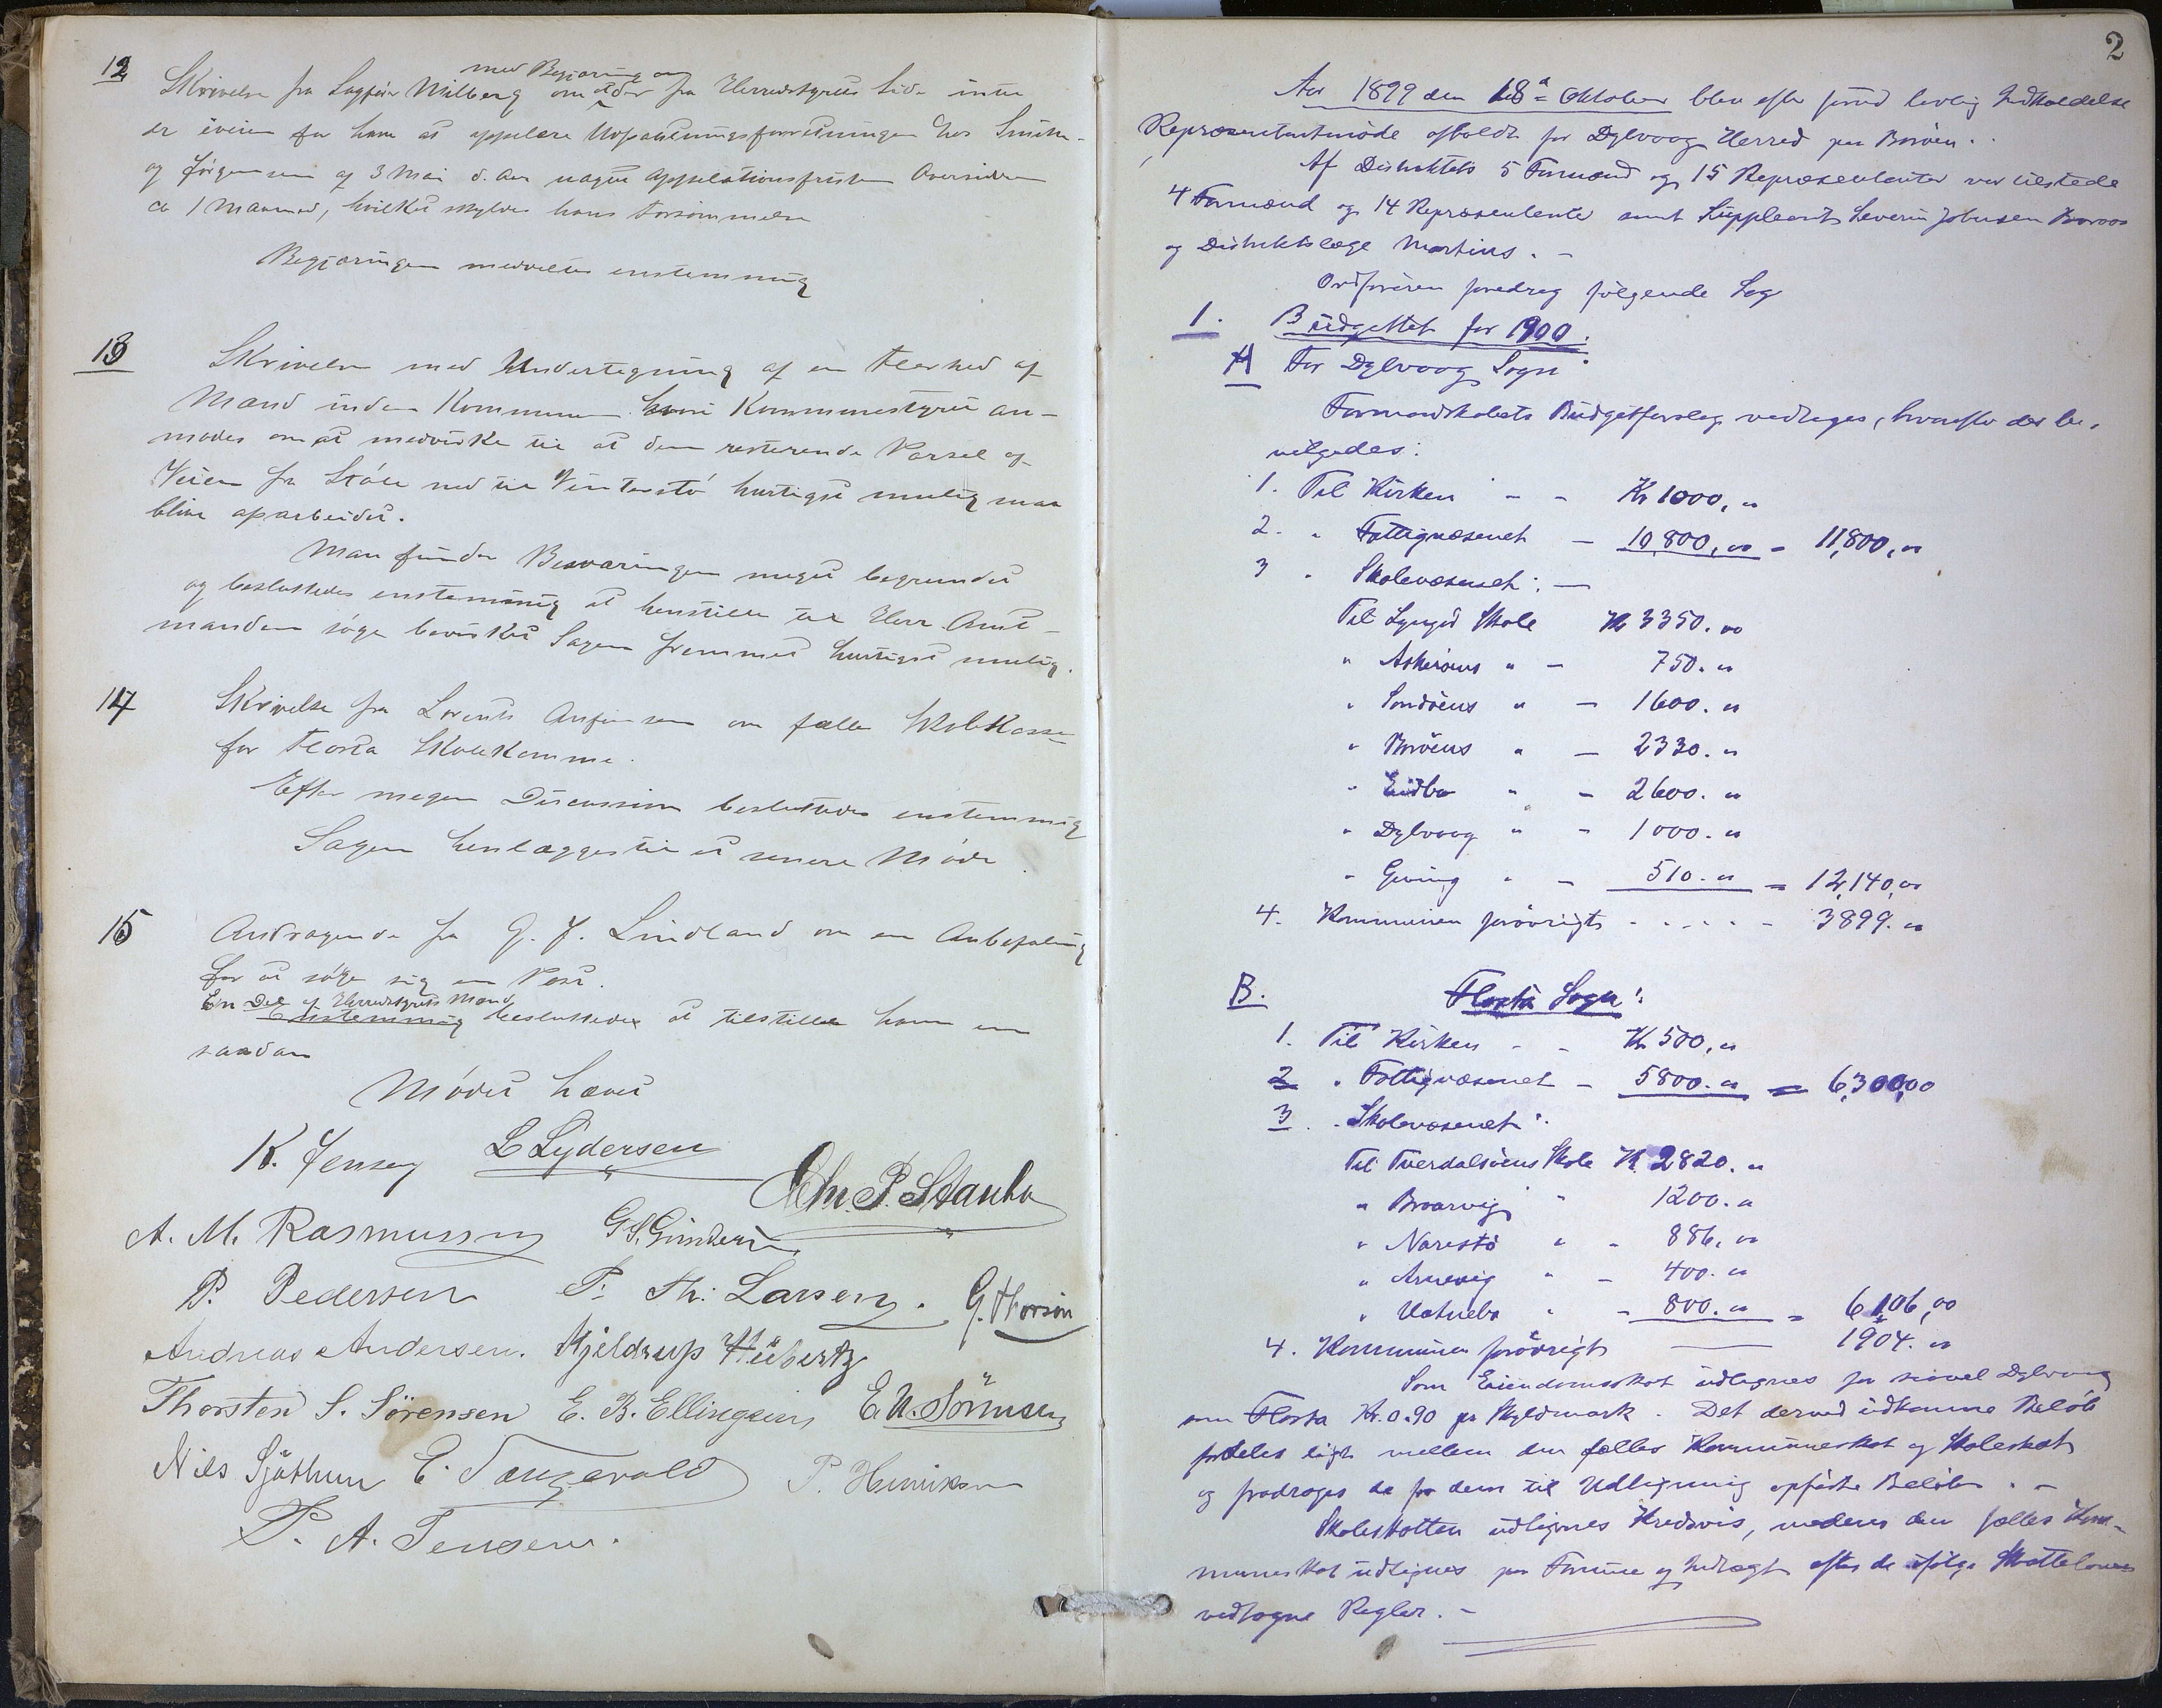 12
med Begjæring om
Skrivelse fra Sagfører Milberg om at der fra Herredstyrets Side intet
er iveien for ham at oppelere Utpantningsforretningen hos Smith
og Jørgensen af 3 Mai d. Aar uagtet Appelationsfristen Oversiddes
ca 1 Maaned, hvilket skyldes hans Forsømmelse
Begjæringen medeeltes enstemmig
13
Skrivelse med Undertegning af en Flerhed af
Mænd inden Kommunen hvori Kommunestyret an-
modes om at medvirke til at den resterende Parsel af
Veien fra Ståle ned til Vinterstø hurtigst mulig maa
blive oparbeidet.
Man fandt Besværingen meget begrundet
og besluttedes enstemmig at henstille til Herr Amt-
manden søge bevirket Sagen fremmet hurtigst mulig.
14
Skrivelse fra Lorents Anfinsen om fælles Skolekasse
for Flosta Skolekomme.
Efter megen Discussion besluttedes enstemmig
Sagen henlægges til et senere Møde
15
Andragende fra G. J. Lindland om en Anbefaling
for at søge sig en Post.
En Del af Herredstyrets Mænd
Enstemmig besluttedes at tilstille ham en
saadan
Mødet hævet
K. Jensen L Lydersen
Chr. P. Staubo
A. M. Rasmussen G S. Gundersen
P. Pedersen P. Th. Larsen. G. Thorsen
Andreas Andersen. Kjeldrup Hübertz
Thorsten S. Sørensen E. B. Ellingsen E. N. Sörensen
Nils Sjåthun E. Songevold P. Henriksen
P. A. Jensen.
2
Aar 1899 den 18de Oktober blev efter forud lovlig Indkaldelse
Repræsentantmøde afholdt for Dybvaag Herred paa Borøen.
Af Distriktets 5 Formænd og 15 Repræsentanter var tilstede
4 Formænd og 14 Repræsentanter samt Suppleant Severin Johnsen
og Distriktslæge Martins. -
Ordføreren foredrog følgende Sag
1. Budgettet for 1900.
A For Dybvaag Sogn
Formandskabets Budgetforslag vedtages, hvorefter der be-
vilgedes:
1. Til Kirken - - Kr 1000, "
2. " Fattigvæsenet - 10,800,00 = 11,800, 00
3 " Skolevæsenet: -
Til Lyngør Skole Kr 3350. 00
" Askerøens " - 750. "
" Sandøens " - 1600. "
" Borøens " - 2330. "
" Eidbo " - 2600. "
" Dybvaag " - 1000. "
" Gjeving " - 510. " = 12,140,00
4. Kommunen forøvrigt - - - - - 3899. "
B. Flosta Sogn:
1. Til Kirken - - Kr 500, "
2 " Fattigvæsenet - 5800. " = 6,300,00
3. " Skolevæsenet:
Til Tverdalsøens Skole Kr 2820. "
" Braarvig " 1200. "
" Narestø " - 886, 00
" Arnevig " - 400. "
" Vatnebo " - 800. " = 6106,00
4. Kommunen forøvrigt — 1904. "
Som Eiendomsskat udlignes for saavel Dybvaag
som Flosta Kr. 0.90 pr Skyldmark. Det derved udkomne Beløb
fordeles ligt mellem den fælles Kommuneskat og Skoleskat
og fradrages de for dem til Udligning opførte Beløb. -
Skoleskatten udlignes Kredsvis, medens den fælles Kom-
muneskat udlignes paa Formue og Indtægt efter de ifølge Skatteloven
vedtagne Regler. -